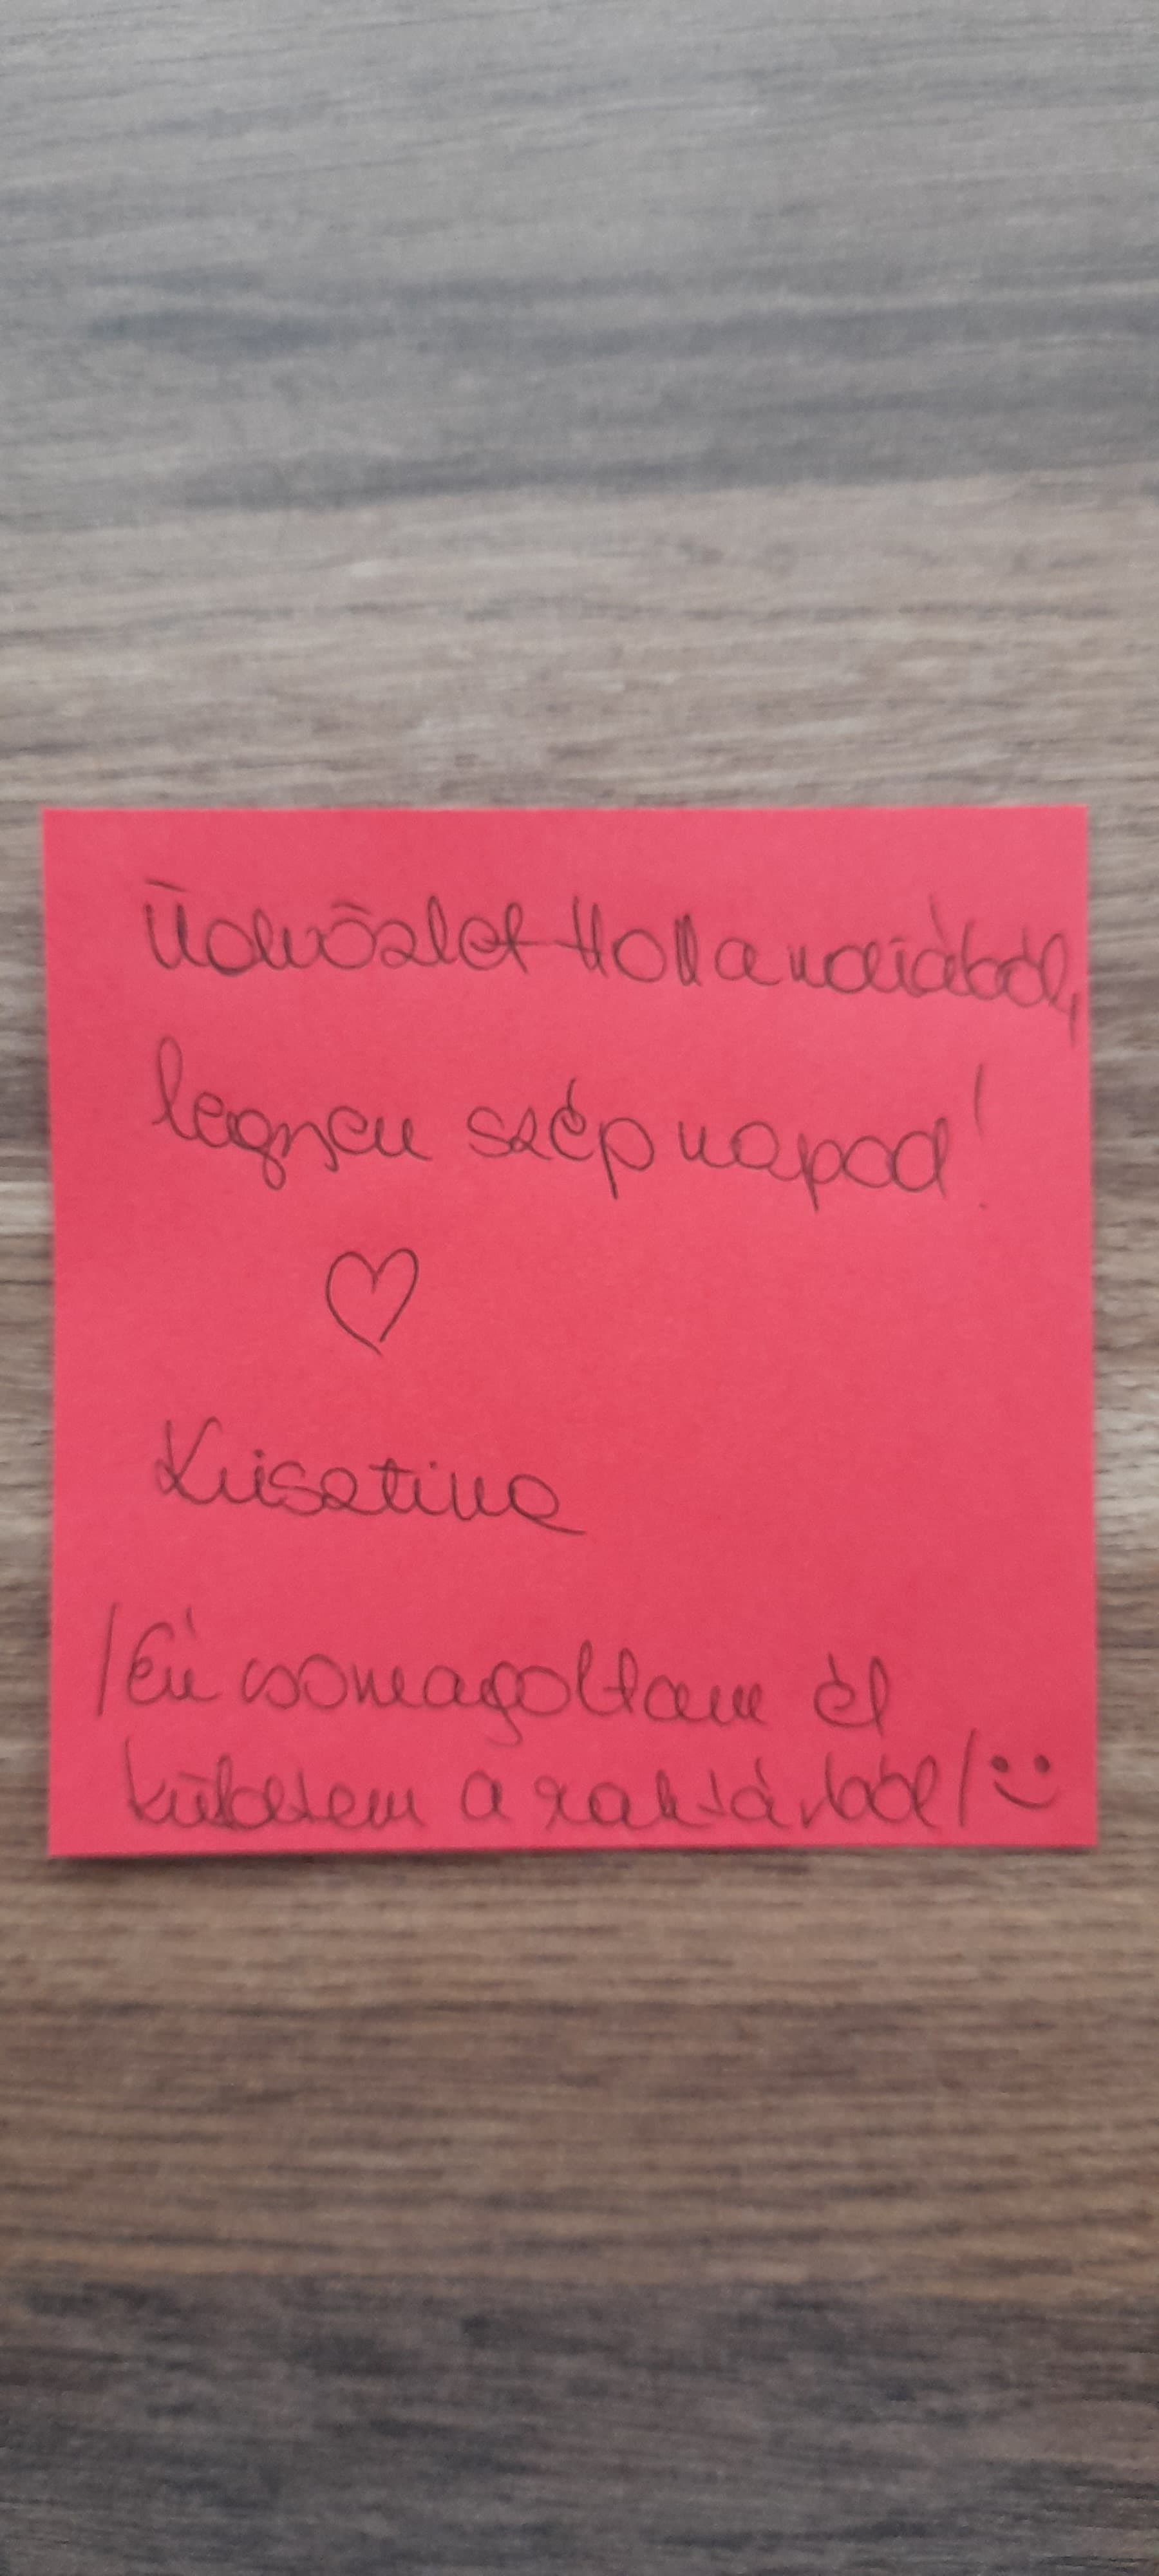 Üdvözlet Hollandiából,
legyen szép napod!
Krisztina
/Én csomagoltam és
küldtem a raktárból/